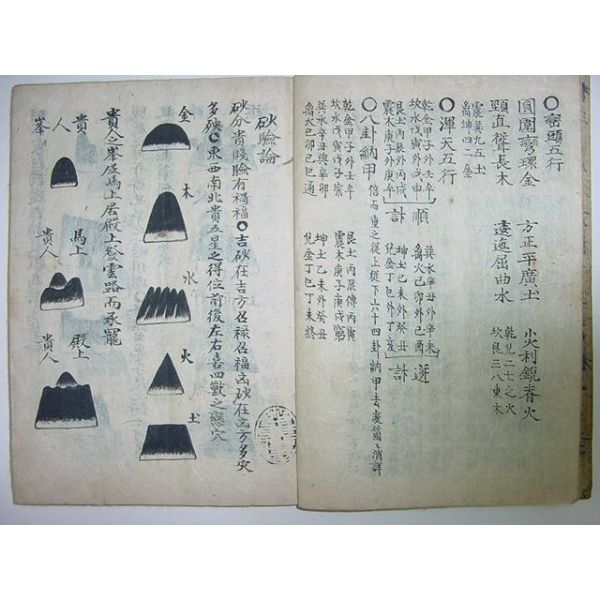 ○巒頭五行
圓圍彎環金 方正平廣土 火利銳者火
頸直聳長木 逶迤屈曲水
乾兌二七之火
坎艮三八東木
震巽九五土
離坤四二金
○渾天五行
乾金甲子外壬午
坎水戊寅外戊申
艮土丙辰外丙戌
震木庚子外庚午
順計
巽水辛丑外辛未
離火己卯外己酉
坤土乙未外癸丑
兌金丁巳外丁亥
逆計
○八卦納甲
乾金甲子外壬午
坎水戊寅戊子
巽水辛丑與辛卯
離火己卯己巳通
艮土丙辰傳丙寅
震木庚子庚戌
坤土乙未外癸丑
兌金丁巳丁未終
砂驗論
砂分貴賤驗有禍福○吉砂在吉方召祿召福凶砂在凶方多灾
多殃○東西南北貴五星之得位前後左右喜四獸之應穴
金
木
水
火
土
貴人之峯居馬上居殿上登雲路而承寵
貴人峯
馬上貴人
殿上貴人